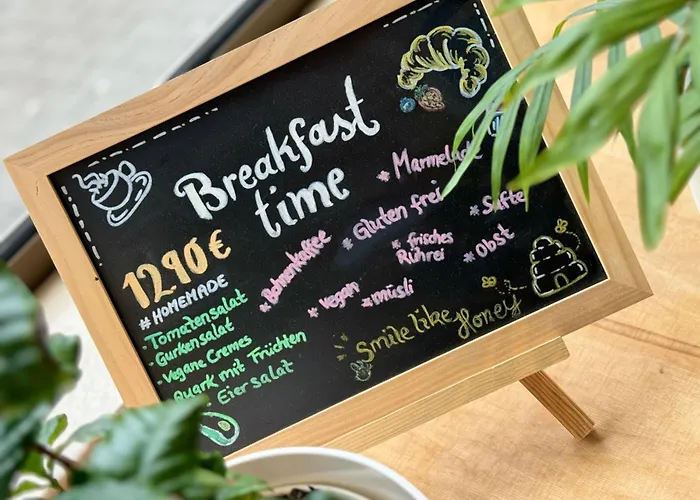 Breakfast
time
1290 €
#HOMEMADE
Tomatensalat
Gurkensalat
Vegane Cremes
Quark mit Früchten
Eiersalat
* Marmelade
* Gluten frei
* Säfte
* Bohnenkaffee
* frisches
Rührei
* Obst
* vegan
* müsli
Smile like Honey